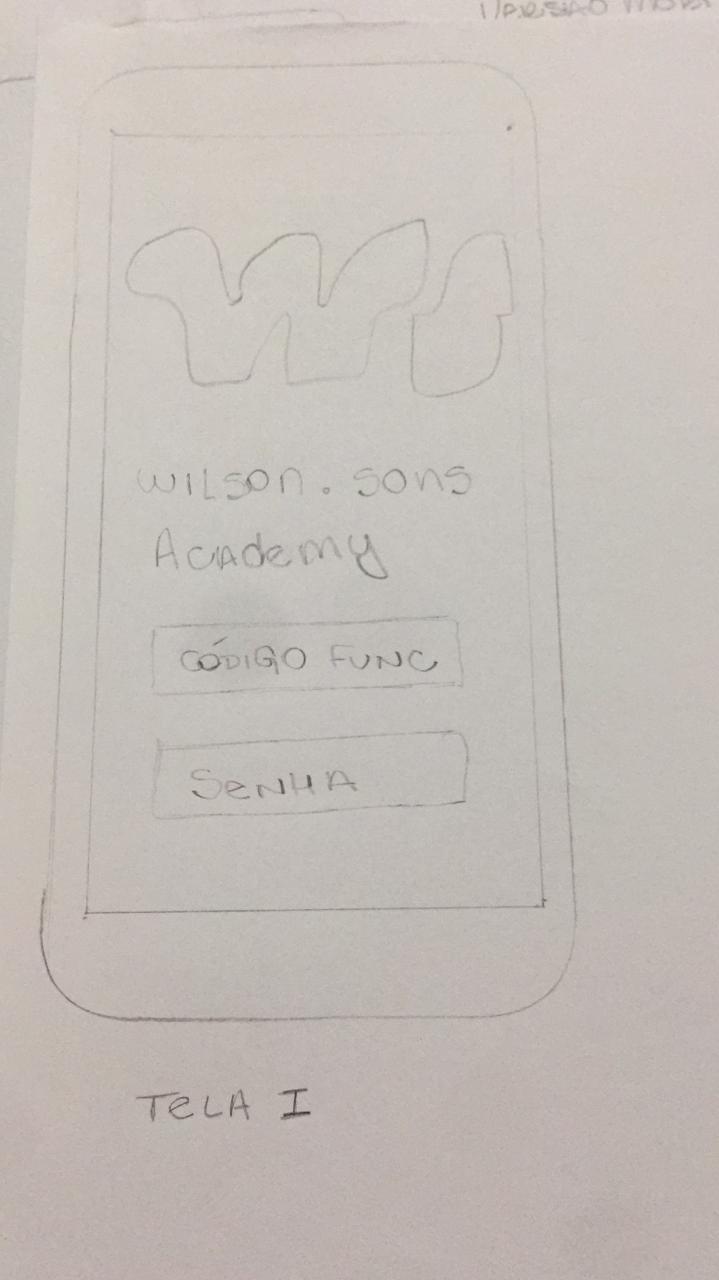 WS
wilson.sons
Academy
CÓDIGO FUNC
SENHA
TELA I